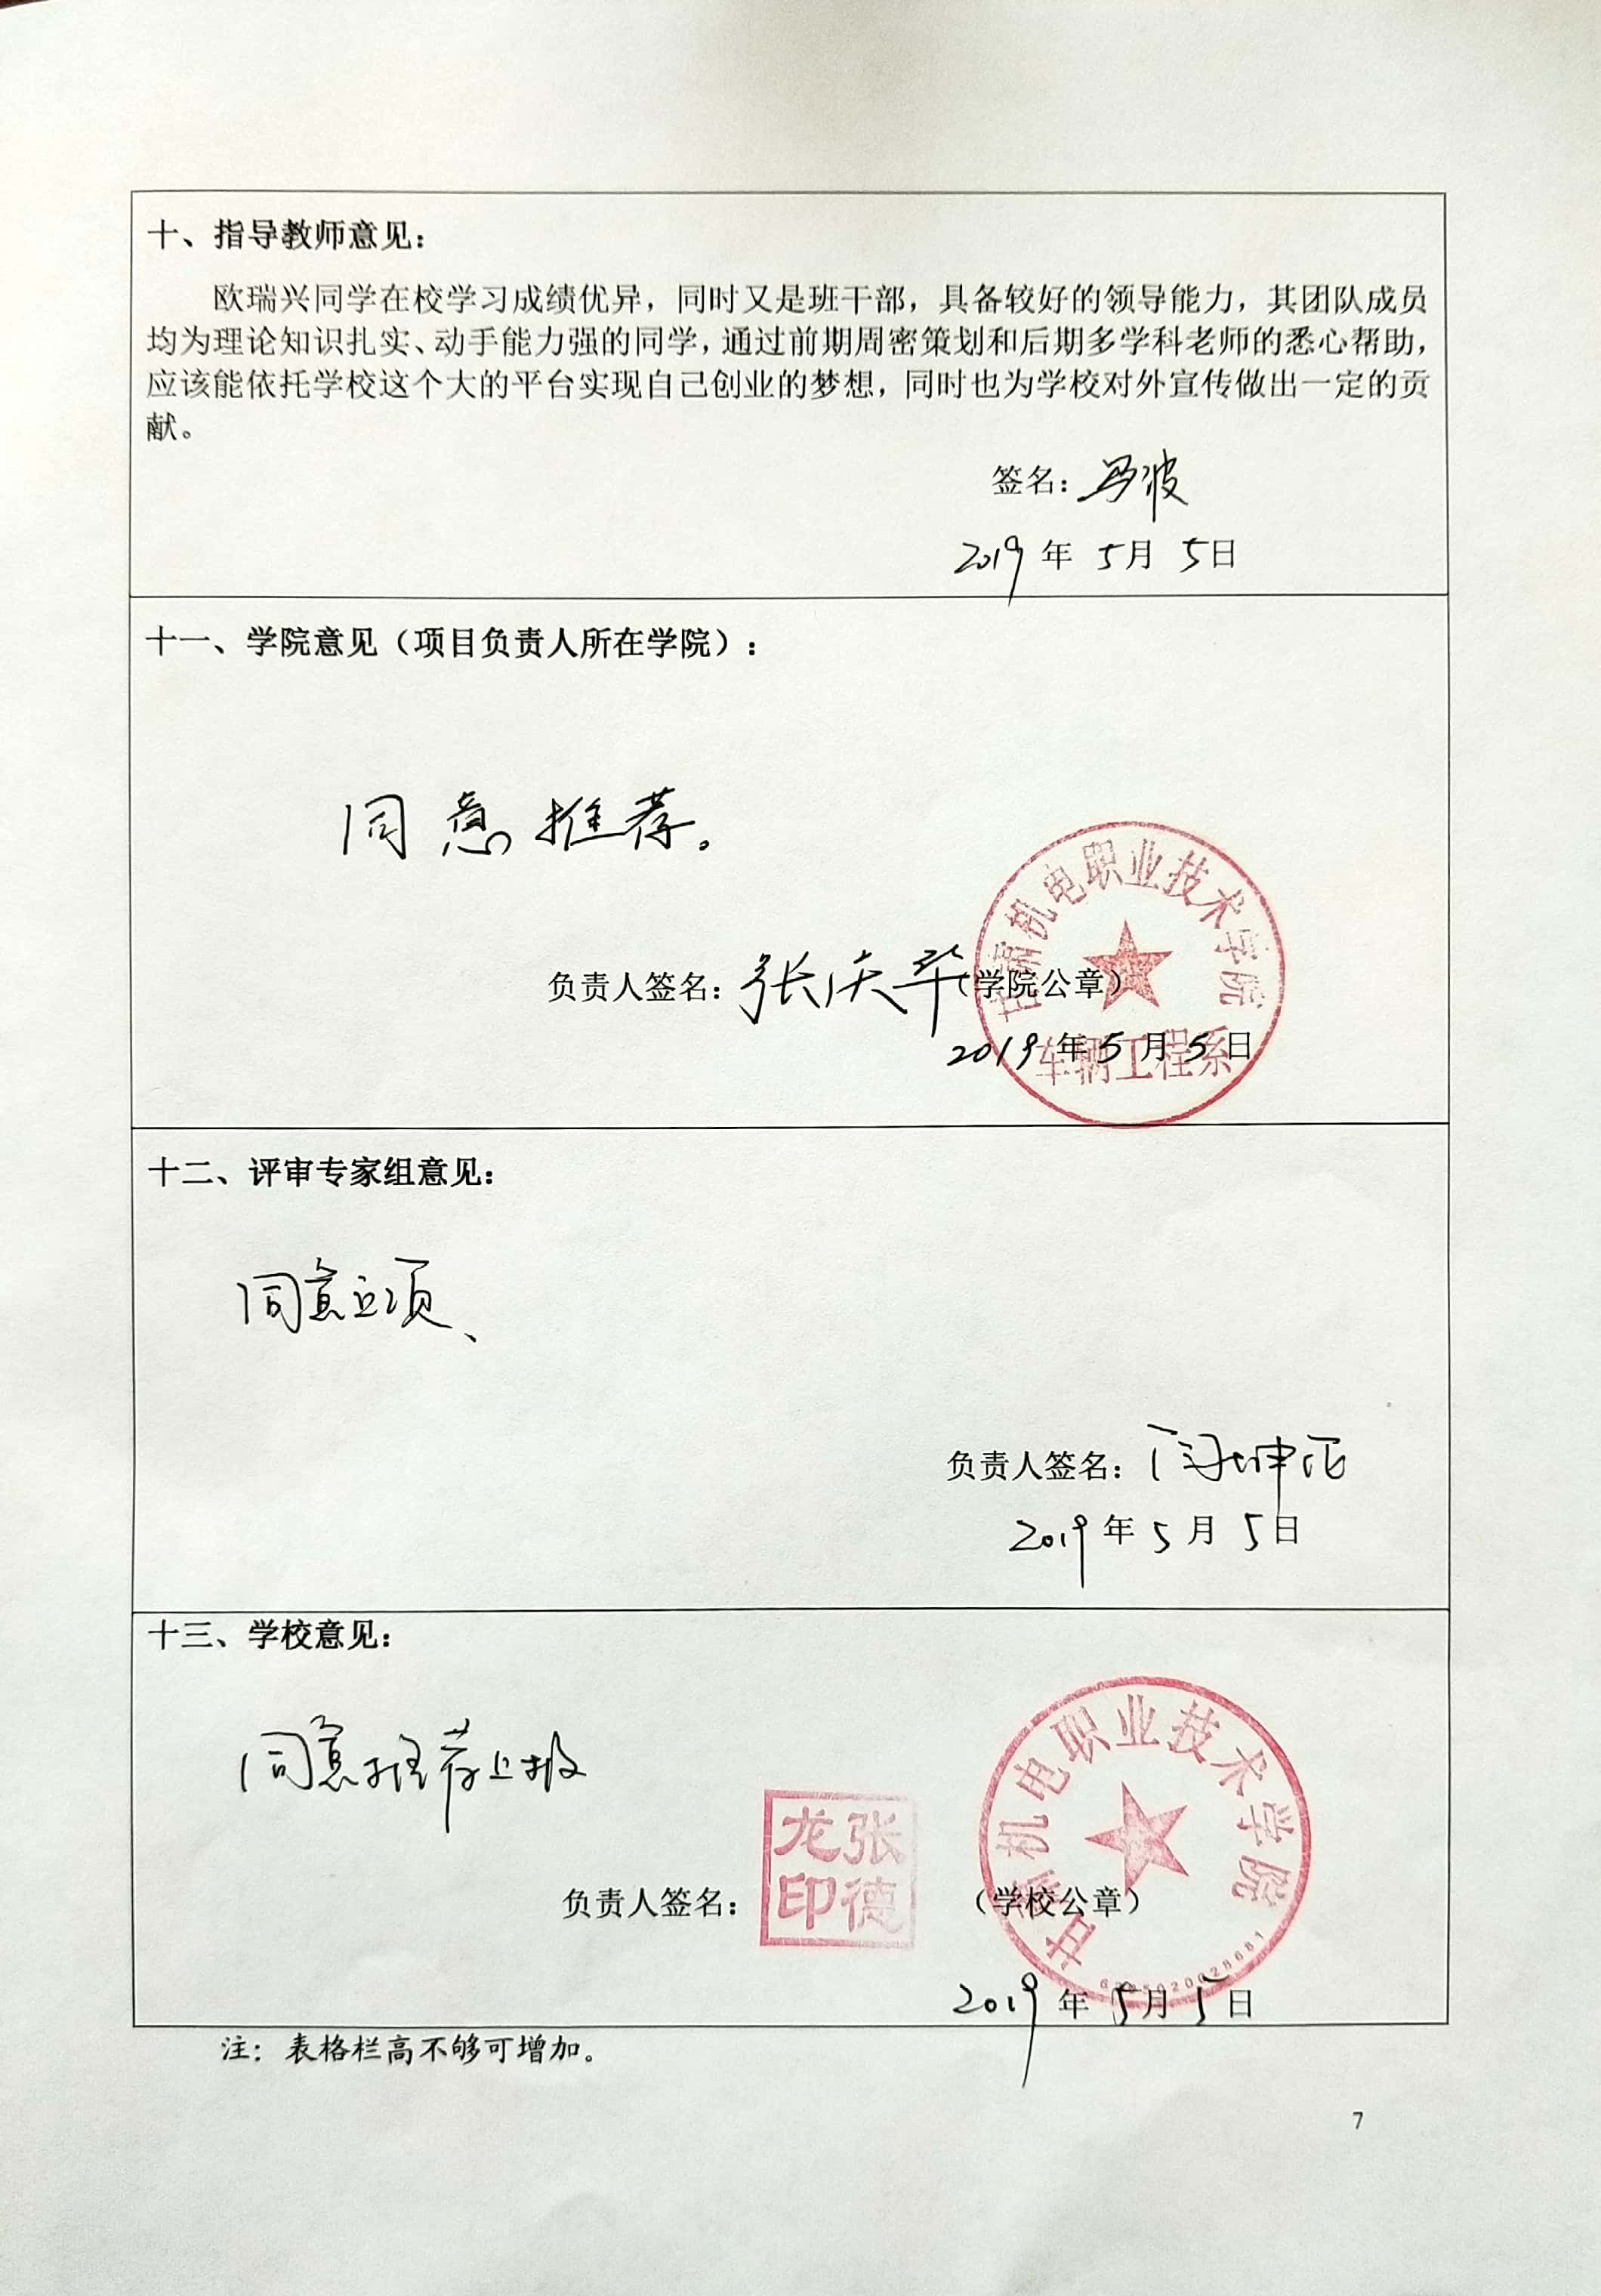 十、指导教师意见：
欧瑞兴同学在校学习成绩优异，同时又是班干部，具备较好的领导能力，其团队成员
均为理论知识扎实、动手能力强的同学，通过前期周密策划和后期多学科老师的悉心帮助，
应该能依托学校这个大的平台实现自己创业的梦想，同时也为学校对外宣传做出一定的贡
献。
签名：冯波
2019年5月5日
十一、学院意见（项目负责人所在学院）：
同意推荐。
甘肃机电职业技术学院
负责人签名：张庆华（学院公章）
2019年5月5日
车辆工程系
十二、评审专家组意见：
同意立项、
负责人签名：
2019年5月5日
十三、学校意见：
同意推荐上报
甘肃机电职业技术学院
张德龙印
负责人签名：（学校公章）
2019年5月5日
注：表格栏高不够可增加。
7